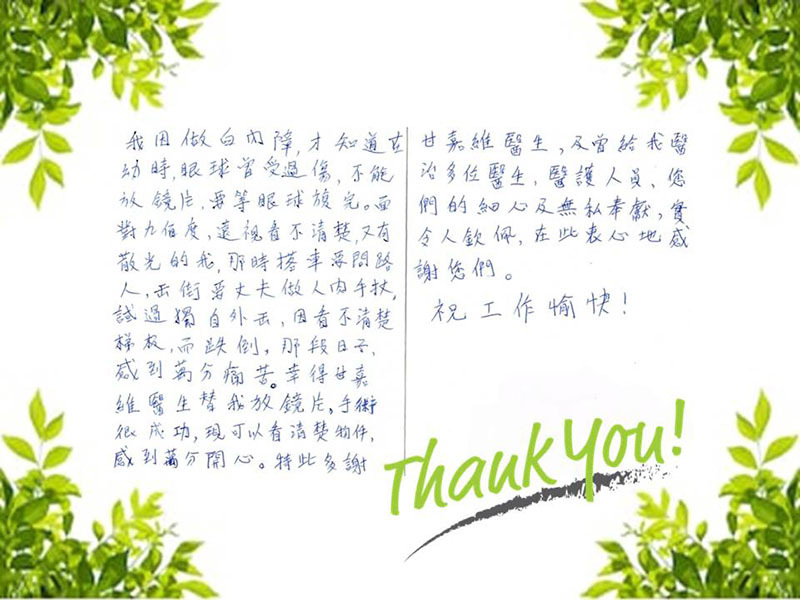 我因做白內障，才知道在
幼時，眼球曾受過傷，不能
放鏡片，要等眼球放完。面
對九佰度，遠視看不清楚，又有
散光的我，那時搭車要問路
人，出街要丈夫做人肉手杖，
試過獨自外出，因看不清楚
梯板，而跌倒，那段日子，
感到萬分痛苦。幸得甘嘉
維醫生替我放鏡片，手術
很成功，現可以看清楚物件，
感到萬分開心。特此多謝
甘嘉維醫生，及曾給我醫
治多位醫生，醫護人員、您
們的細心及無私奉獻，實
令人欽佩，在此衷心地感
謝您們。
祝工作愉快！
Thank You!